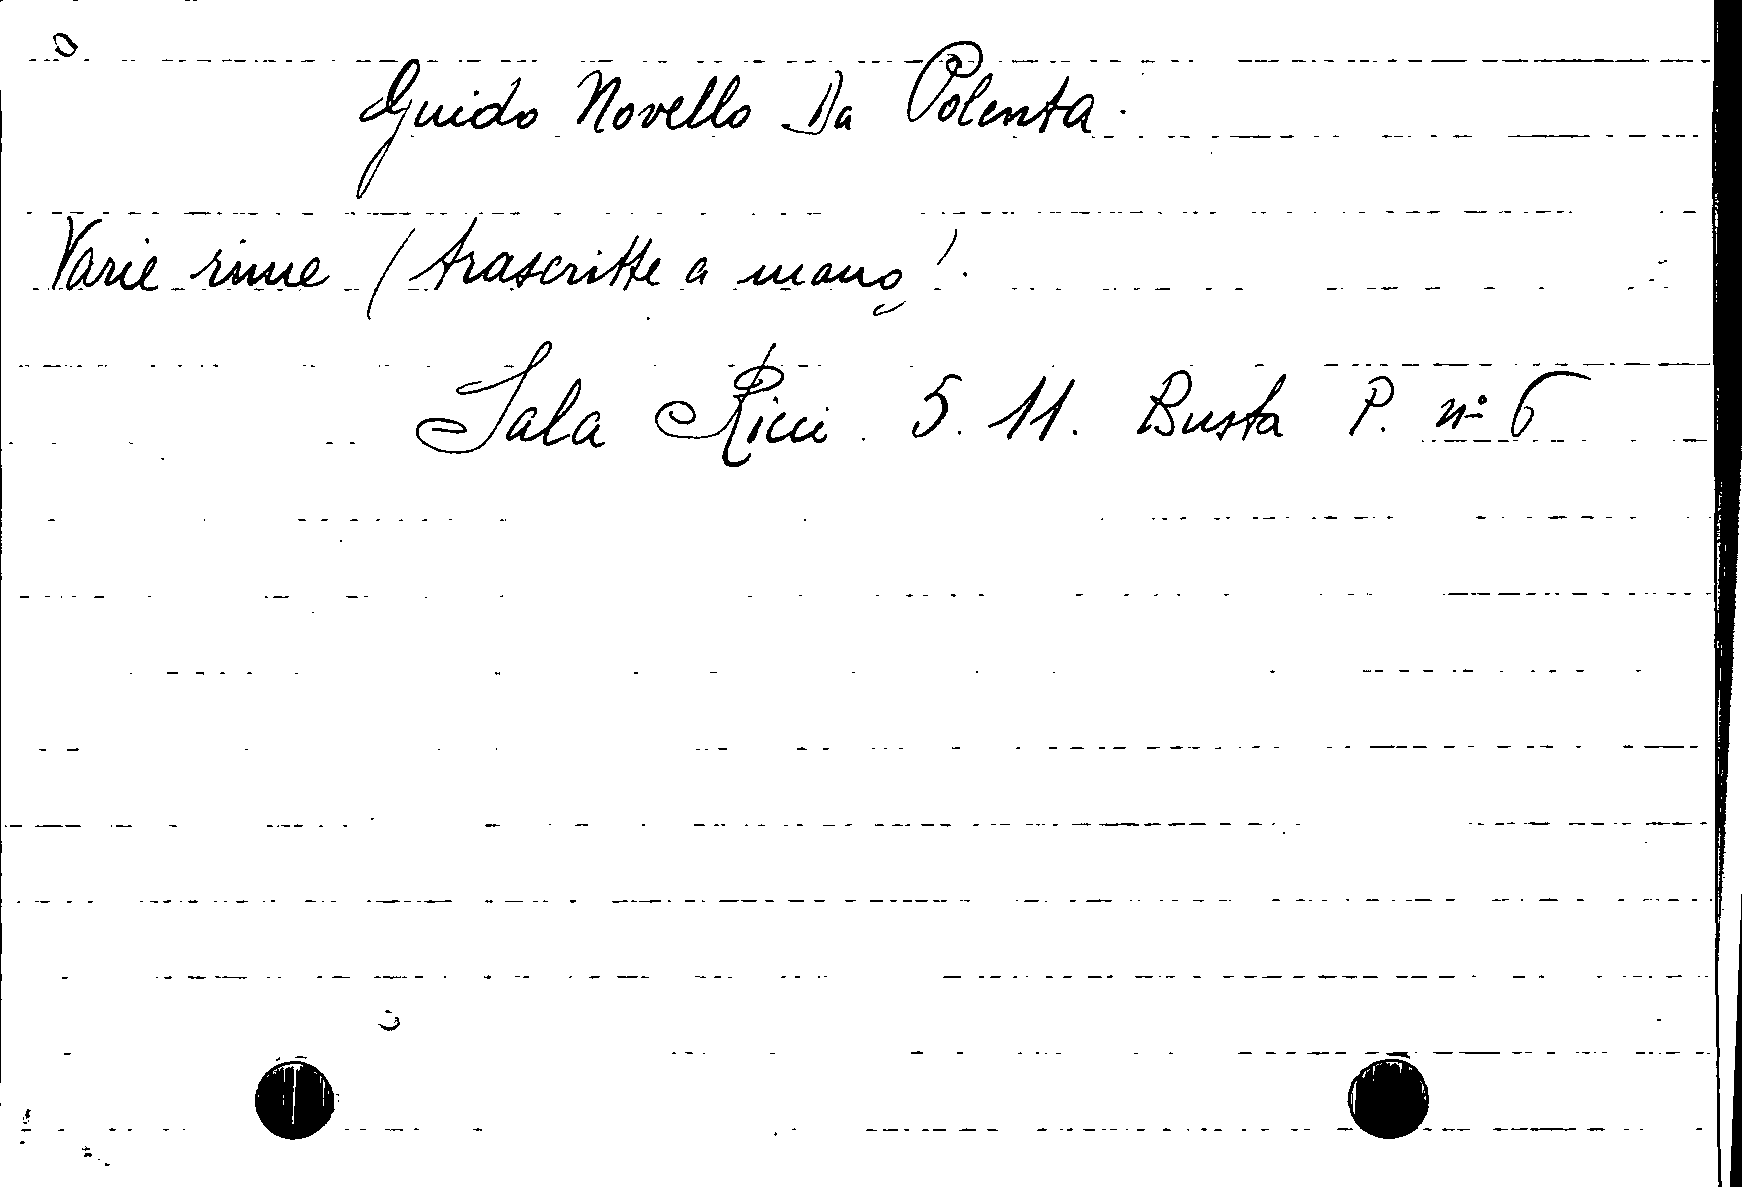 Guido Novello Da Polenta.
Varie rime (trascritte a mano).
Sala Ricci. 5. 11. Busta P. nº 6